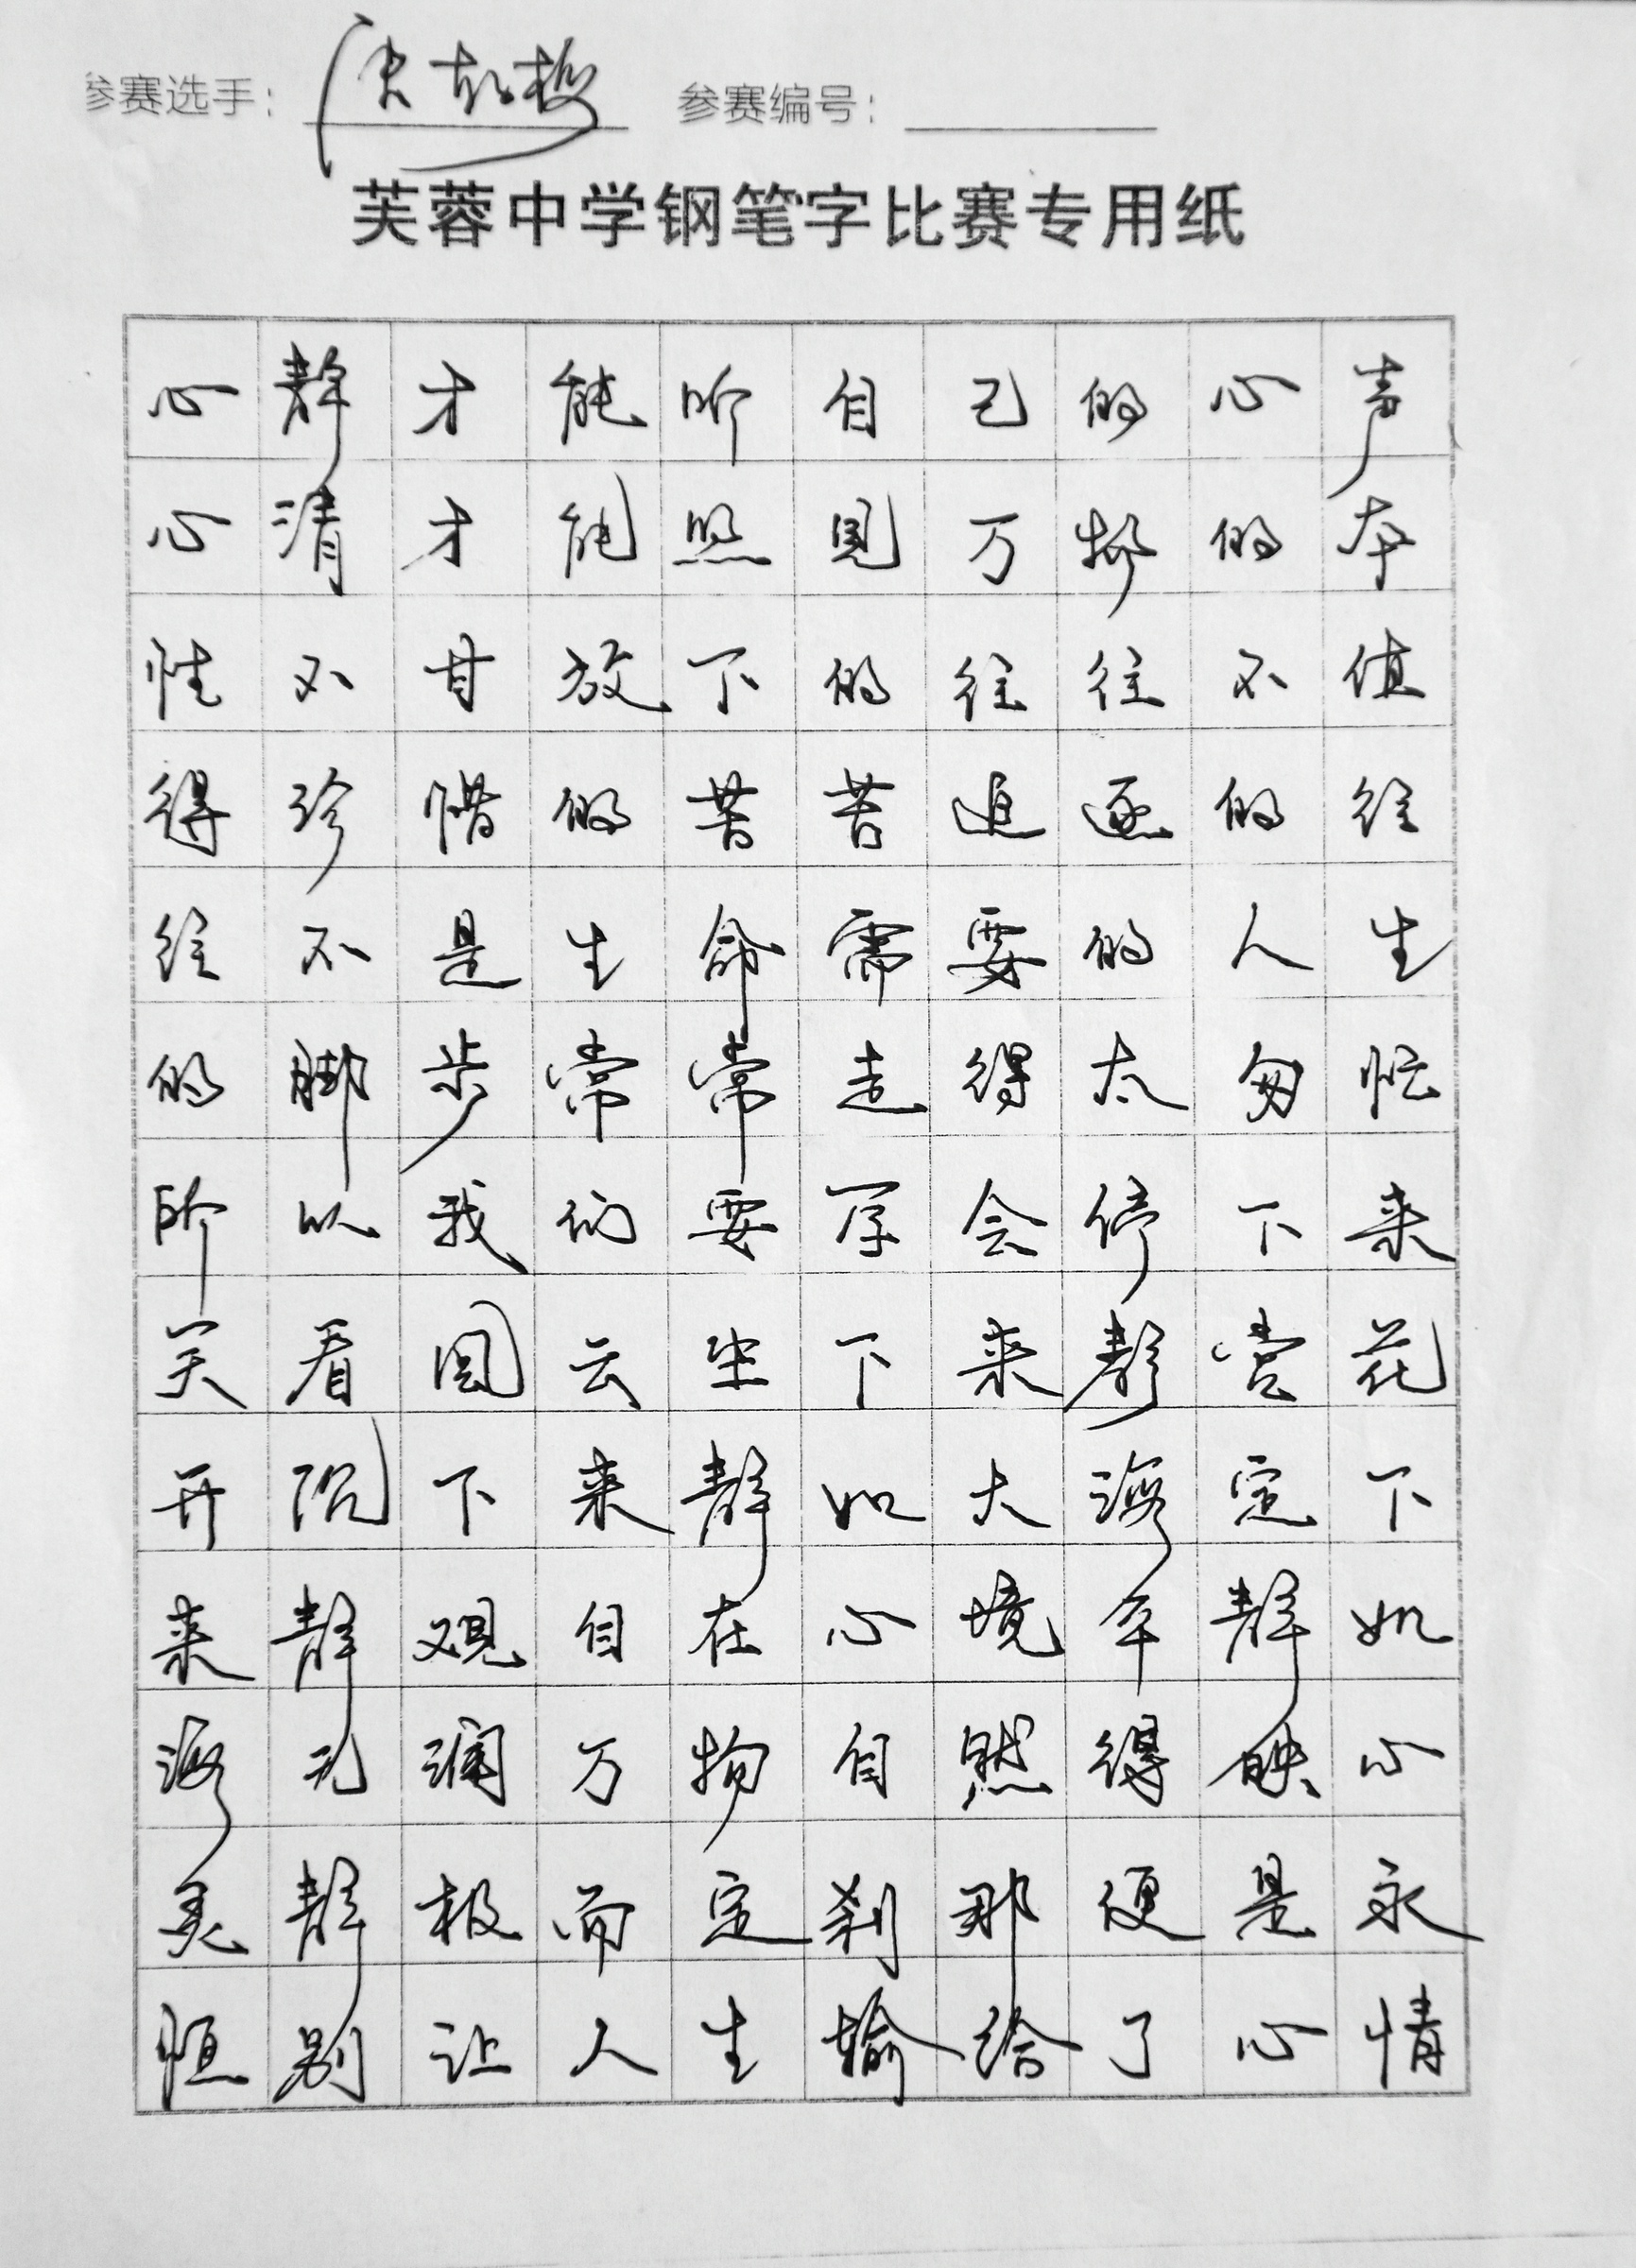 参赛选手： 参赛编号：
芙蓉中学钢笔字比赛专用纸
心静才能听自己的心声
心清才能照见万物的本
性不甘放下的往往不值
得珍惜的苦苦追逐的往
往不是生命需要的人生
的脚步常常走得太匆忙
所以我们要学会停下来
笑看风云坐下来静赏花
开沉下来静如大海定下
来静观自在心境平静如
海无澜万物自然得映心
灵静极而定刹那便是永
恒别让人生输给了心情